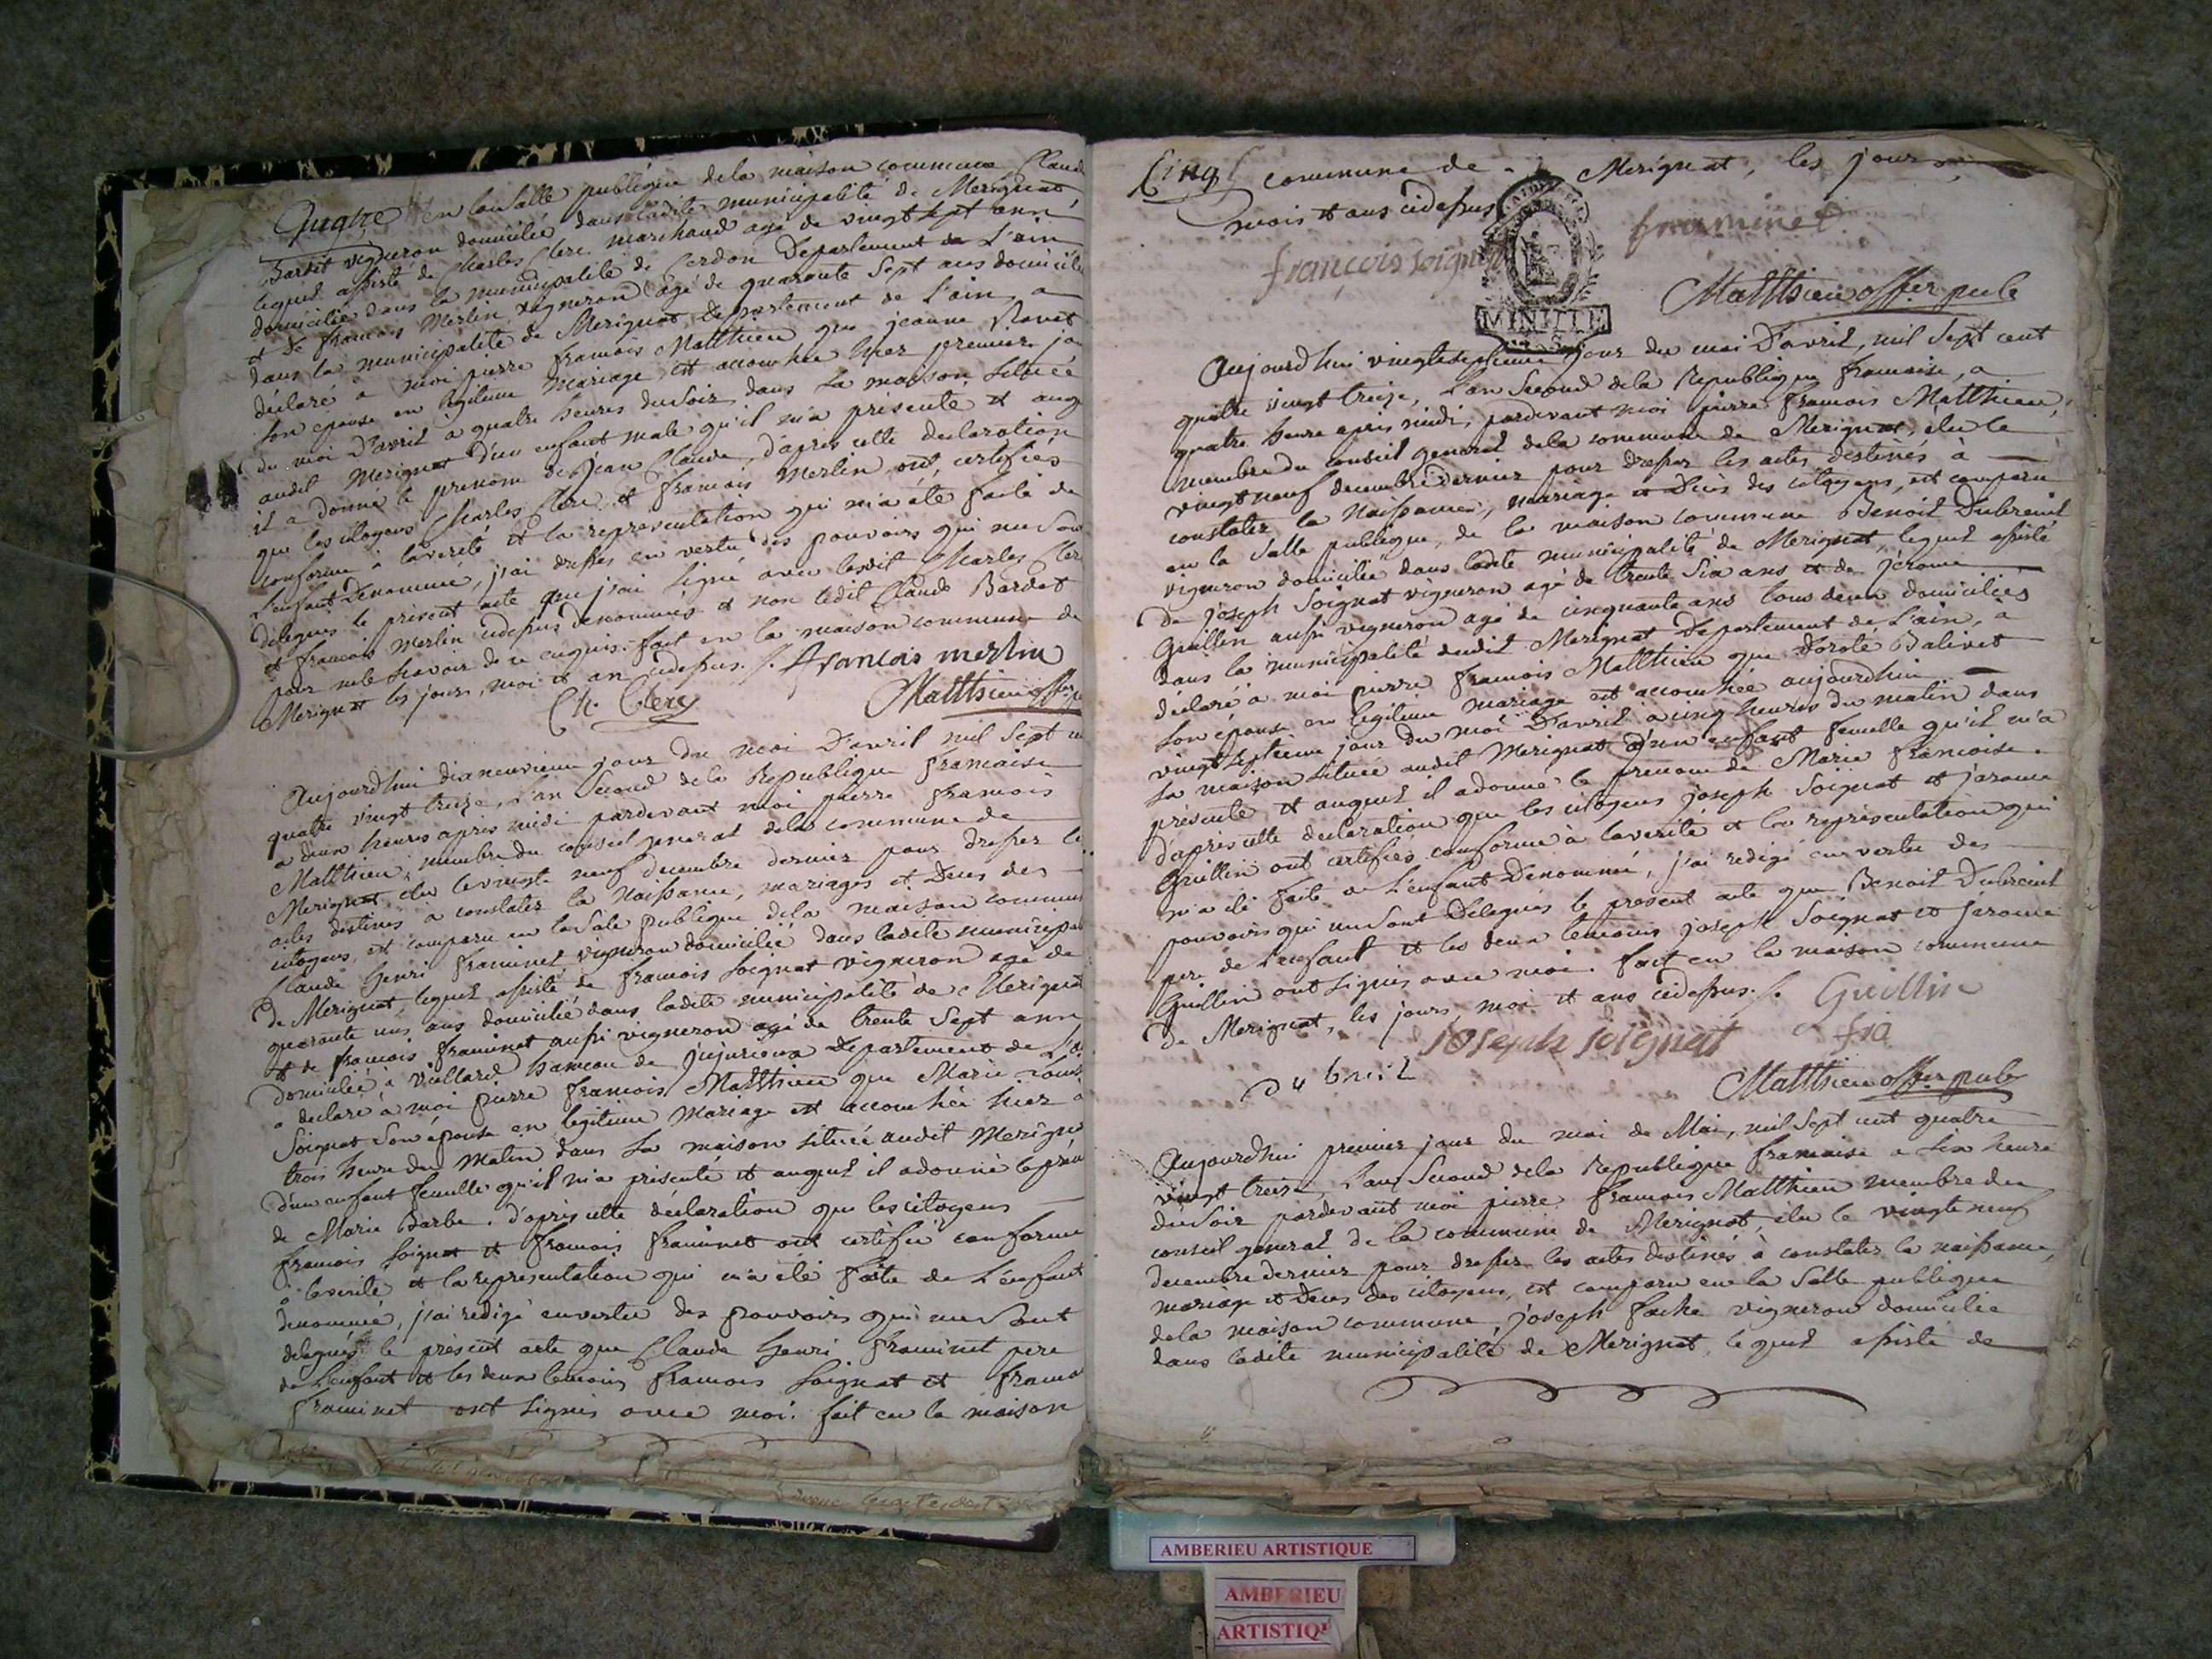 en la Salle publique de la maison commune Claude
Bardet vigneron domicilié dans ladite municipalité de Merignat
lequel assisté de Charles Clerc marchand agé de vingt sept ans
domicilié dans la municipalité de Cerdon Departement de L'ain
et de francois Merlin vigneron agé de quarante Sept ans domicilié
dans la municipalité de Merignat, departement de L'ain, a
déclaré a moi pierre francois Matthieu que jeanne
son epouse en legitime mariage, est accouchée hier premier jour
du moi D'avril a quatre heures du Soir dans sa maison située
audit Merignat d'un enfant male qu'il m'a présenté et auquel
il a donné le prenom de jean Claude, d'apres cette declaration
que les citoyens Charles Clerc et francois Merlin ont certifiés
conforme a la verité et la representation qui m'a été faite de
L'enfant Dénommé, j'ai dressés en vertu des pouvoirs qui me Sont
délegués le présent acte que j'ai Signé avec lesdit Charles Clerc
et francois Merlin cidessus denommés et non ledit Claude Bardet
pour ne le Scavoir de ce enquis. fait en la maison commune de
Merignat les jours, moi et an cidessus. /. francois merlin
Ch. Clerc Matthieu offier
Aujourdhui dixneuvieme jour du moi D'avril mil Sept cent
quatre vingt treize, L'an Second de la Republique francaise
a deux heures apres midi pardevant moi pierre francois
Matthieu, membre du conseil general de la commune de
Merignat, elu le vingte neuf decembre dernier pour dresser les
actes destinés a constater la Naissance, mariages et Deces des
citoyens, est comparu en la Sale publique de la maison commune
Claude henri framinet vigneron domicilié dans ladite municipalité
de Merignat, lequel assisté de francois Soignat vigneron agé de
quarante uns ans domicilié dans ladite municipalité de Merignat
et de francois framinet aussi vigneron agé de trente Sept ans
domicilié a Viellard hameau de jujurieux Departement de L'ain
a declaré a moi pierre francois Matthieu que Marie Louise
Soignat Son épouse en legitime Mariage est accouchée hier a
trois heure du Matin dans Sa maison située audit Merignat
d'un enfant femelle qu'il m'a présenté et auquel il a donné le prénom
de Marie Barbe. d'apres cette déclaration que les citoyens
francois Soignat et francois framinet ont certifié conforme
a la verité et la representation qui m'a été faite de L'enfant
denommé, j'ai redigé en vertu des pouvoirs qui me Sont
delegués le présent acte que Claude henri framinet pere
de L'enfant et les deux temoins francois Soignat et francois
framinet ont Signés avec moi. fait en la maison
Cinq commune de Merignat, les jours,
mois et ans cidessus
françois soignat framinet
MINUTE
Matthieu offier pub
Aujourdhui vingtseptieme jour du moi D'avril, mil Sept cent
quatre vingt treize, L'an Second de la Republique francaise, a
quatre heure apres midi, pardevant moi pierre francois Matthieu,
membre du conseil general de la commune de Merignat, élu le
vingt neuf decembre dernier pour dresser les actes destinés à
constater la Naissance, mariage et Décès des citoyens, est comparu
en la Salle publique, de la maison commune Benoit Dubreuil
vigneron domicilié dans ladite municipalité de Merignat, lequel assisté
De joseph Soignat vigneron agé de trente Six ans et de jérome
Guillin aussi vigneron agé de cinquante ans tous deux domiciliés
dans la municipalité dudit Merignat Departement de L'ain, a
déclaré a moi pierre francois Matthieu que Doroté Balivet
Son épouse en legitime mariage est accouchée aujourdhui
vingt septieme jour du moi D'avril a cinq heures du matin dans
Sa maison située audit Merignat d'un enfant femelle qu'il m'a
présenté et auquel il a donné le prenom de Marie francoise.
d'apres cette declaration que les citoyens joseph Soignat et jerome
Guillin ont certifiés conforme à la verité et la représentation qui
m'a été faite de L'enfant Dénommé, j'ai redigé en vertu des
pouvoirs qui me Sont Délegués le present acte que Benoit Dubreuil
pere de L'enfant et les deux temoins joseph Soignat et jerome
Guillin ont Signés avec moi. fait en la maison commune
de Merignat, les jours, moi et ans cidessus. /. Guillin
joseph soignat
Matthieu offier pub
Aujourdhui premier jour du moi de Mai, mil Sept cent quatre
vingt treize, L'an Second de la Republique francaise a Six heure
du Soir pardevant moi pierre francois Matthieu membre du
conseil general de la commune de Merignat, élu le vingte neuf
decembre dernier pour dresser les actes destinés à constater la naissance,
mariage et Deces des citoyens, est comparu en la Salle publique
de la maison commune, joseph vigneron domicilié
dans ladite municipalité de Merignat, lequel assisté de
AMBERIEU ARTISTIQUE
AMBERIEU
ARTISTIQ